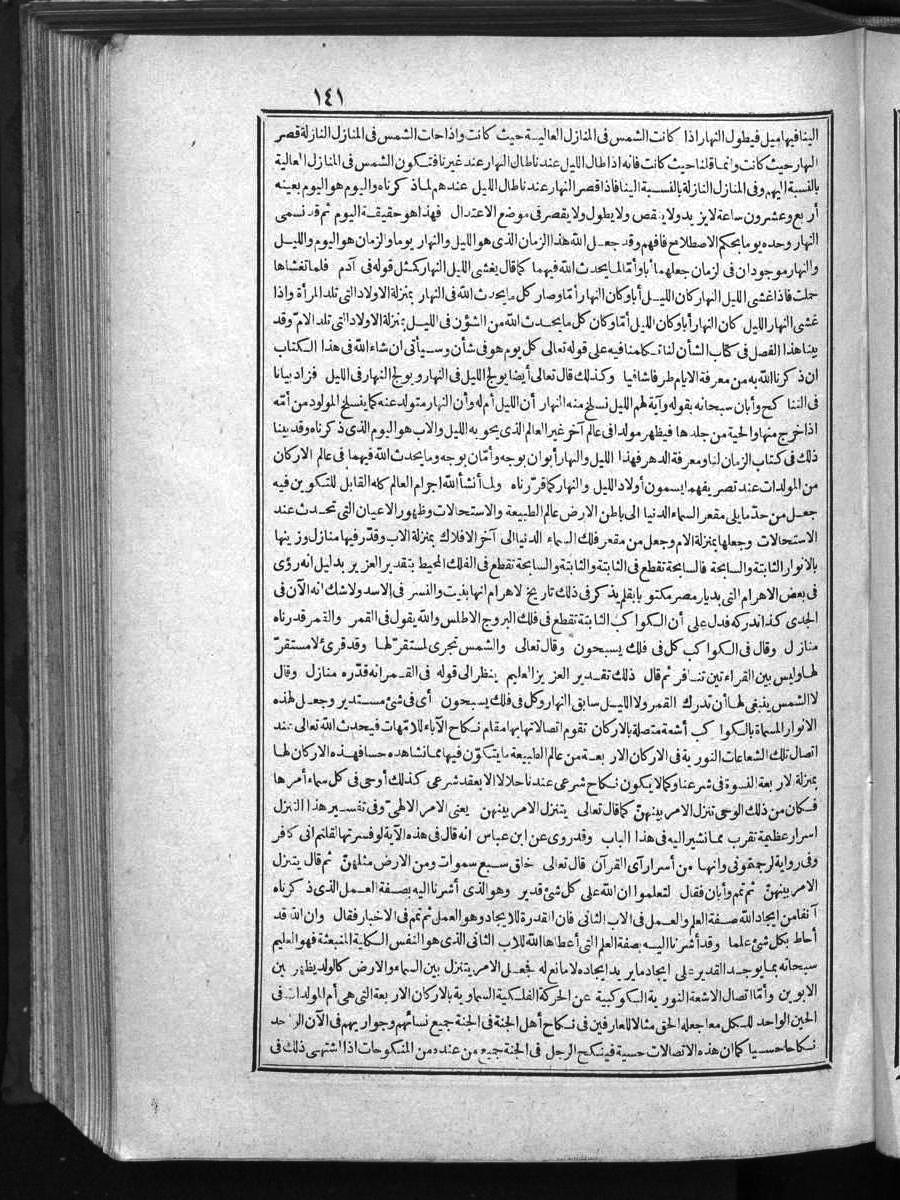 ١٤١
الينا فيها ميل فيطول النهار اذا كانت الشمس فى المنازل العالية حيث كانت واذا حلت الشمس فى المنازل النازلة قصر
النهار حيث كانت وانما قلنا حيث كانت فانه اذا طال الليل عندنا طال النهار عند غيرنا فتكون الشمس فى المنازل العالية
بالنسبة اليهم وفى المنازل النازلة بالنسبة الينا فاذا قصر النهار عندنا طال الليل عندهم لما ذكرناه واليوم هو اليوم بعينه
أربع وعشرون ساعة لا يزيد ولا ينقص ولا يطول ولا يقصر فى موضع الاعتدال فهذا هو حقيقة اليوم ثم قد نسمى
النهار وحده يوما بحكم الاصطلاح فافهم وقد جعل الله هذا الزمان الذى هو الليل والنهار يوما والزمان هو اليوم والليل
والنهار موجودان فى الزمان جعلهما أبا وأما لما يحدث الله فيهما كما قال يغشى الليل النهار كمثل قوله فى آدم فلما تغشاها
حملت فاذا غشى الليل النهار كان الليل أبا وكان النهار أما وصار كل ما يحدث الله فى النهار بمنزلة الاولاد التى تلد المرأة واذا
غشى النهار الليل كان النهار أبا وكان الليل أما وكان كل ما يحدث الله من الشؤن فى الليل بمنزلة الاولاد التى تلد الام وقد
بينا هذا الفصل فى كتاب الشأن لنا تكلمنا فيه على قوله تعالى كل يوم هو فى شأن وسيأتى ان شاء الله فى هذا الكتاب
ان ذكرنا الله به من معرفة الايام طرفا شافيا وكذلك قال تعالى أيضا يولج الليل فى النهار ويولج النهار فى الليل فزاد بيانا
فى التناكح وأبان سبحانه بقوله وآية لهم الليل نسلخ منه النهار أن الليل أم له وأن النهار متولد عنه كما ينسلخ المولود من أمه
اذا خرج منها والحية من جلدها فيظهر مولدا فى عالم آخر غير العالم الذى يحويه الليل والاب هو اليوم الذى ذكرناه وقد بينا
ذلك فى كتاب الزمان لنا ومعرفة الدهر فهذا الليل والنهار أبوان بوجه وأمان بوجه وما يحدث الله فيهما فى عالم الاركان
من المولدات عند تصريفهما يسمون أولاد الليل والنهار كما قررناه ولما أنشأ الله اجرام العالم كله القابل للتكوين فيه
جعل من حد ما يلى مقعر السماء الدنيا الى باطن الارض عالم الطبيعة والاستحالات وظهور الاعيان التى تحدث عند
الاستحالات وجعلها بمنزلة الام وجعل من مقعر فلك السماء الدنيا الى آخر الافلاك بمنزلة الاب وقدر فيها منازل وزينها
بالانوار الثابتة والسابحة فالسابحة تقطع فى الثابتة والثابتة والسابحة تقطع فى الفلك المحيط بتقدير العزيز بدليل انه رؤى
فى بعض الاهرام التى بديار مصر مكتوبا بقلم يذكر فى ذلك تاريخ الاهرام انها بنيت والنسر فى الاسد ولا شك انه الآن فى
الجدى كذا ندركه فدل على أن الكواكب الثابتة تقطع فى فلك البروج الاطلس والله يقول فى القمر والقمر قدرناه
منازل وقال فى الكواكب كل فى فلك يسبحون وقال تعالى والشمس تجرى لمستقر لها وقد قرئ لا مستقر
لها وليس بين القراءتين تنافر ثم قال ذلك تقدير العزيز العليم ينظر الى قوله فى القمر انه قدره منازل وقال
لا الشمس ينبغى لها أن تدرك القمر ولا الليل سابق النهار وكل فى فلك يسبحون أى فى شئ مستدير وجعل لهذه
الانوار المسماة بالكواكب أشعة متصلة بالاركان تقوم اتصالاتها بها مقام نكاح الآباء للامهات فيحدث الله تعالى عند
اتصال تلك الشعاعات النورية فى الاركان الاربعة من عالم الطبيعة ما يتكون فيها مما نشاهده حسا فهذه الاركان لها
بمنزلة الاربعة النسوة فى شرعنا وكما لا يكون نكاح شرعى عندنا حلالا الا بعقد شرعى كذلك أوحى فى كل سماء أمرها
فكان من ذلك الوحى تنزل الامر بينهن كما قال تعالى يتنزل الامر بينهن يعنى الامر الالهى وفى تفسير هذا التنزل
اسرار عظيمة تقرب مما نشير اليه فى هذا الباب وقد روى عن ابن عباس انه قال فى هذه الآية لو فسرتها لقلتم انى كافر
وفى رواية لرجمتمونى وانها من أسرار آى القرآن قال تعالى خلق سبع سموات ومن الارض مثلهن ثم قال يتنزل
الامر بينهن ثم تمم وأبان فقال لتعلموا ان الله على كل شئ قدير وهو الذى أشرنا اليه بصفة العمل الذى ذكرناه
آنفا من ايجاد الله صفة العلم والعمل فى الاب الثانى فان القدرة للايجاد وهو العمل ثم تمم فى الاخبار فقال وان الله قد
أحاط بكل شئ علما وقد أشرنا اليه بصفة العلم التى أعطاها الله للاب الثانى الذى هو النفس الكلية المنبعثة فهو العليم
سبحانه بما يوجد القدير على ايجاد ما يريد ايجاده لا مانع له فجعل الامر يتنزل بين السماء والارض كالولد يظهر بين
الابوين وأما اتصال الاشعة النورية الكوكبية عن الحركة الفلكية السماوية بالاركان الاربعة التى هى أم المولدات فى
الحين الواحد للكل معا جعله الحق مثالا للعارفين فى نكاح أهل الجنة فى الجنة جميع نسائهم وجواريهم فى الآن الواحد
نكاحا حسيا كما ان هذه الاتصالات حسية فينكح الرجل فى الجنة جميع من عنده من المنكوحات اذا اشتهى ذلك فى